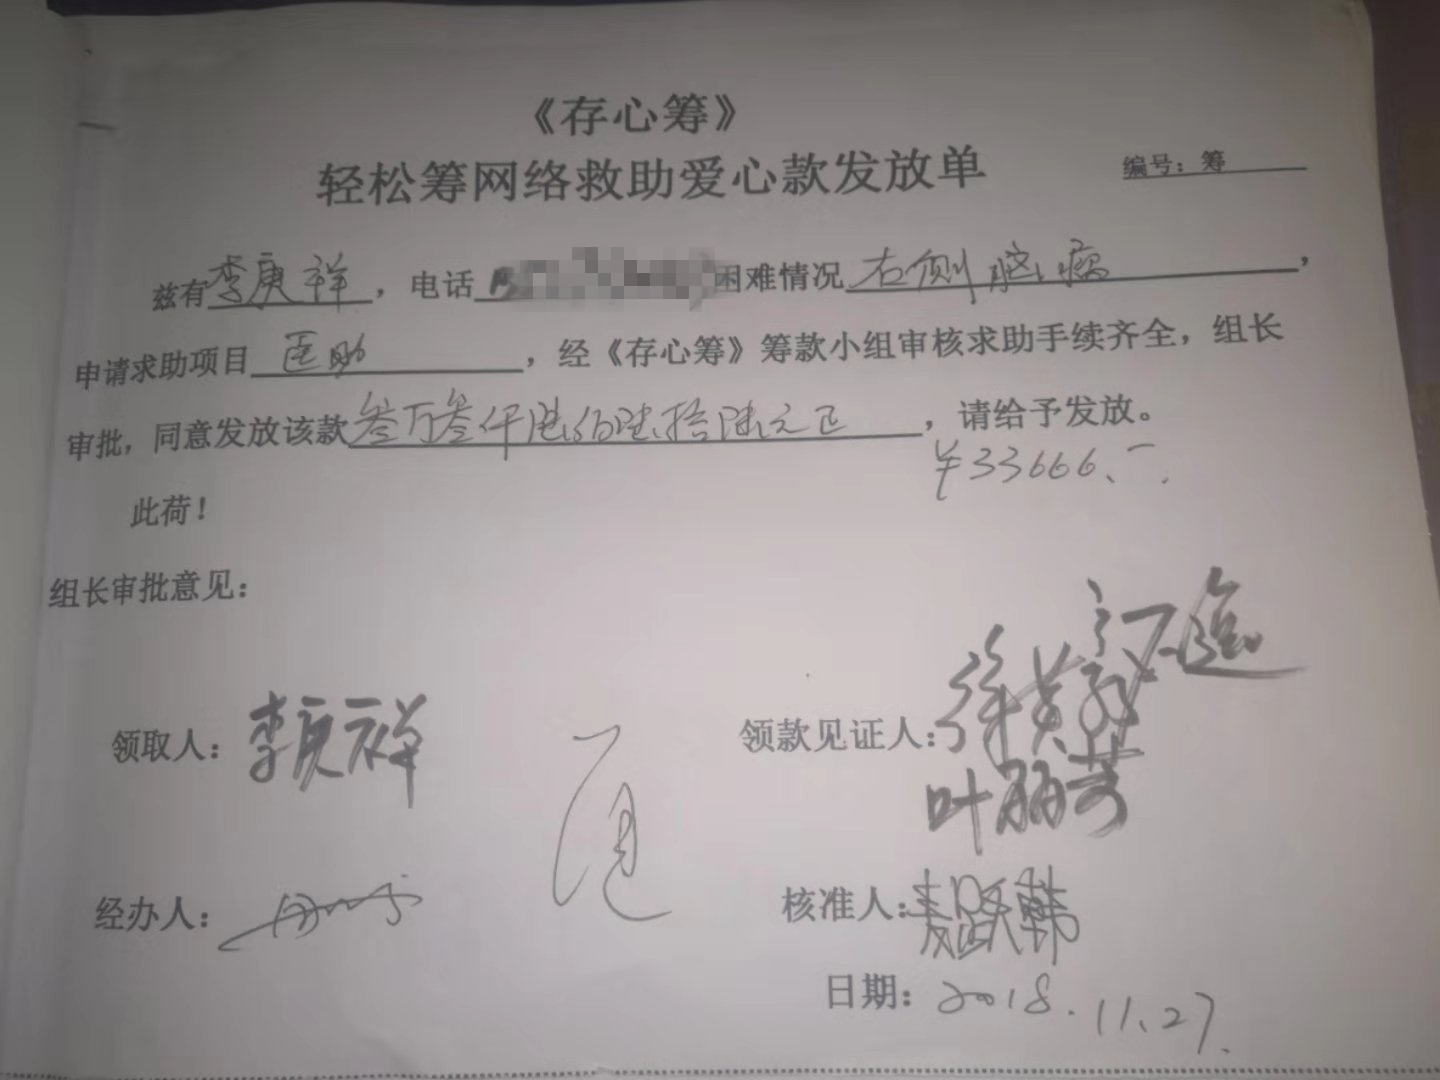 《存心筹》
轻松筹网络救助爱心款发放单
编号：筹
兹有李庚祥，电话 困难情况右侧脑瘤，
申请求助项目医助，经《存心筹》筹款小组审核求助手续齐全，组长
审批，同意发放该款叁万叁仟陆佰陆拾陆元正，请给予发放。
￥33666.-
此荷！
组长审批意见：
领取人：李庚祥
领款见证人：
叶丽芳
经办人：
核准人：
日期：2018.11.27.